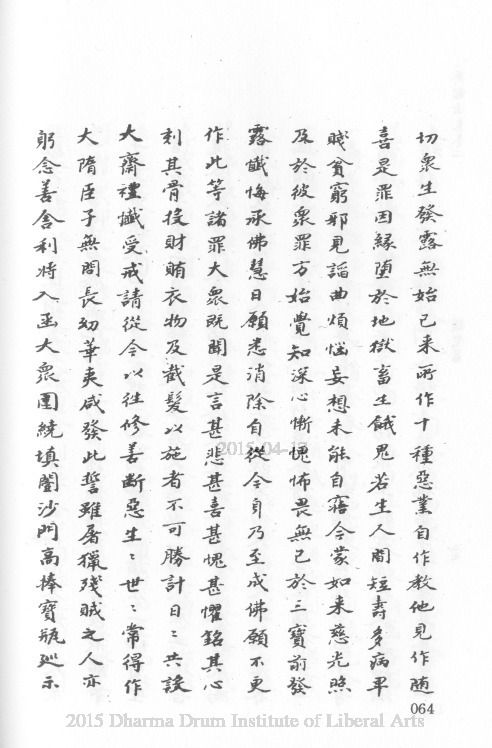 切衆生發露無始已来所作十種惡業自作教他見作随
喜是罪因緣墮於地獄畜生餓鬼若生人間短壽多病卑
賤貧窮邪見謟曲煩惱妄想未能自寤今蒙如来慈光照
及於彼衆罪方始覺知深心慚愧怖畏無已於三寶前發
露懴悔承佛慧日願悉消除自從今身乃至成佛願不更
作此等諸罪大衆既聞是言甚悲甚喜甚愧甚懼銘其心
刻其骨投財賄衣物及截髮以施者不可勝計日：共設
大齋禮懴受戒請從今以往修善斷惡生：世：常得作
大隋臣子無問長幼華夷咸發此誓雖屠獵殘賊之人亦
躬念善舍利將入函大衆圍繞填闉沙門高捧寶瓶巡示
064
2015-04-17
2015 Dharma Drum Institute of Liberal Arts